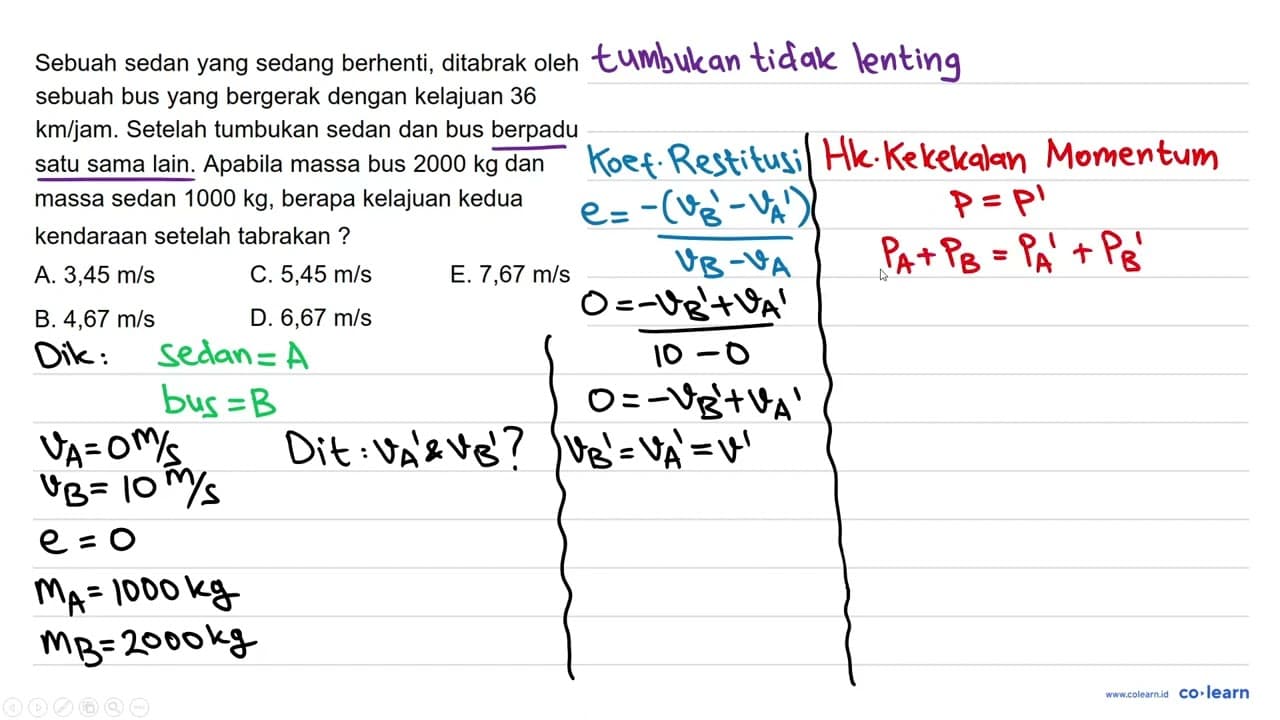 Sebuah sedan yang sedang berhenti, ditabrak oleh
sebuah bus yang bergerak dengan kelajuan 36
km/jam. Setelah tumbukan sedan dan bus berpadu
satu sama lain. Apabila massa bus 2000 kg dan
massa sedan 1000 kg, berapa kelajuan kedua
kendaraan setelah tabrakan ?
A. 3,45 m/s C. 5,45 m/s E. 7,67 m/s
B. 4,67 m/s D. 6,67 m/s
Dik: sedan = A
bus = B
v_A = 0 m/s Dit : v_A' & v_B' ?
v_B = 10 m/s
e = 0
m_A = 1000 kg
m_B = 2000 kg
tumbukan tidak lenting
Koef. Restitusi
e = -(v_B' - v_A')
v_B - v_A
0 = -v_B' + v_A'
10 - 0
0 = -v_B' + v_A'
v_B' = v_A' = v'
Hk. Kekekalan Momentum
P = P'
P_A + P_B = P_A' + P_B'
www.colearn.id co·learn